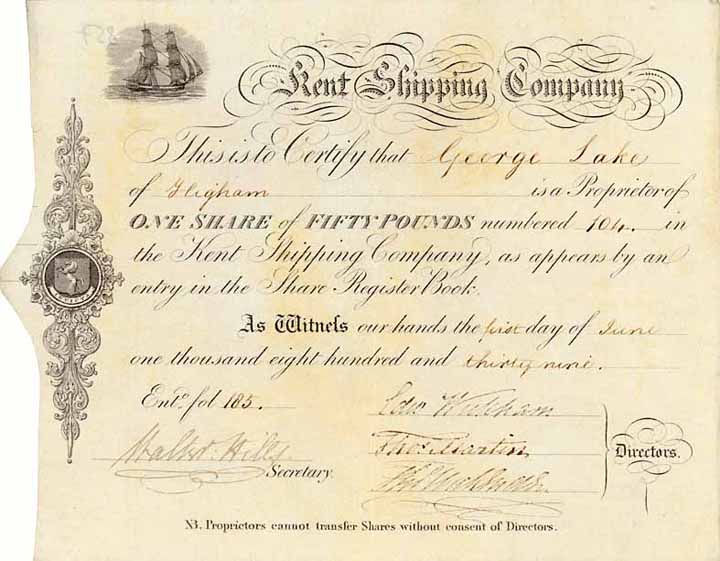 Kent Shipping Company
This is to Certify that George Lake
of Higham is a Proprietor of
ONE SHARE of FIFTY POUNDS numbered 104. in
the Kent Shipping Company, as appears by an
entry in the Share Register Book.
As Witneſs our hands the first day of June
one thousand eight hundred and thirty nine.
Entd. fol 185.
Walter Wills
Secretary.
Thos. Martin
Directors.
NB. Proprietors cannot transfer Shares without consent of Directors.